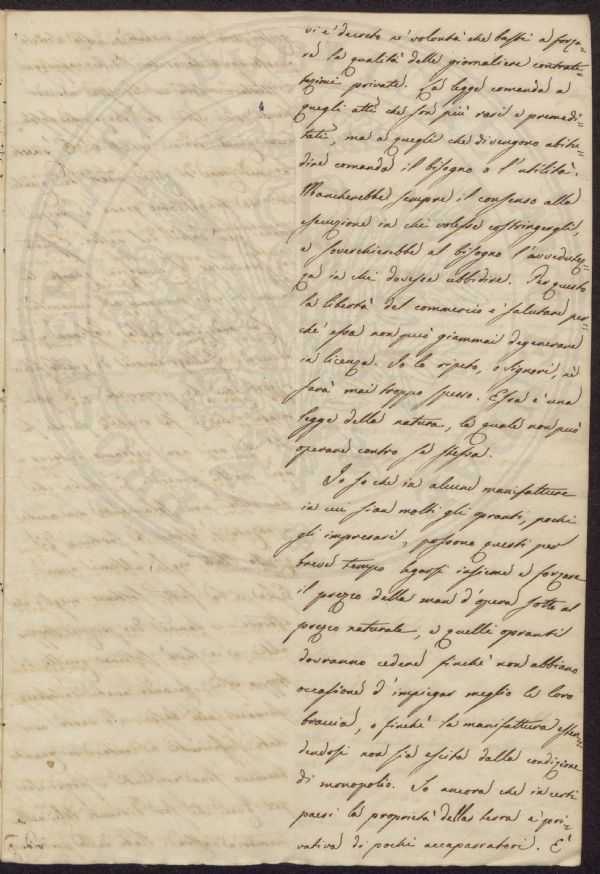 vi è decreto nè volontà che basti a forza-
re la qualità delle giornaliere contrat-
tazioni private. La legge comanda a
quegli atti che son più rari e premedi-
tati, ma a quegli che divengono abitu-
dine comanda il bisogno o l'utilità.
Mancherebbe sempre il consenso alla
esecuzione in chi volesse costringergli,
e soverchierebbe al bisogno l'avvedutez-
za in chi dovesse ubbidire. Per questo
la libertà del commercio è salutare per-
chè essa non può giammai degenerare
in licenza. Io lo ripeto, o Signori, nè
sarà mai troppo spesso. Essa è una
legge della natura, la quale non può
operare contro se stessa.
Io so che in alcune manifatture
in cui sian molti gli opranti, pochi
gli impresari, possono questi per
breve tempo legarsi insieme e forzare
il prezzo della man d'opera sotto al
prezzo naturale, e quelli opranti
dovranno cedere finchè non abbiano
occasione d'impiegar meglio le loro
braccia, o finchè la manifattura esten-
dendosi non sia escita dalla condizione
di monopolio. So ancora che in certi
paesi la proprietà della terra è pri-
vativa di pochi accaparratori. E